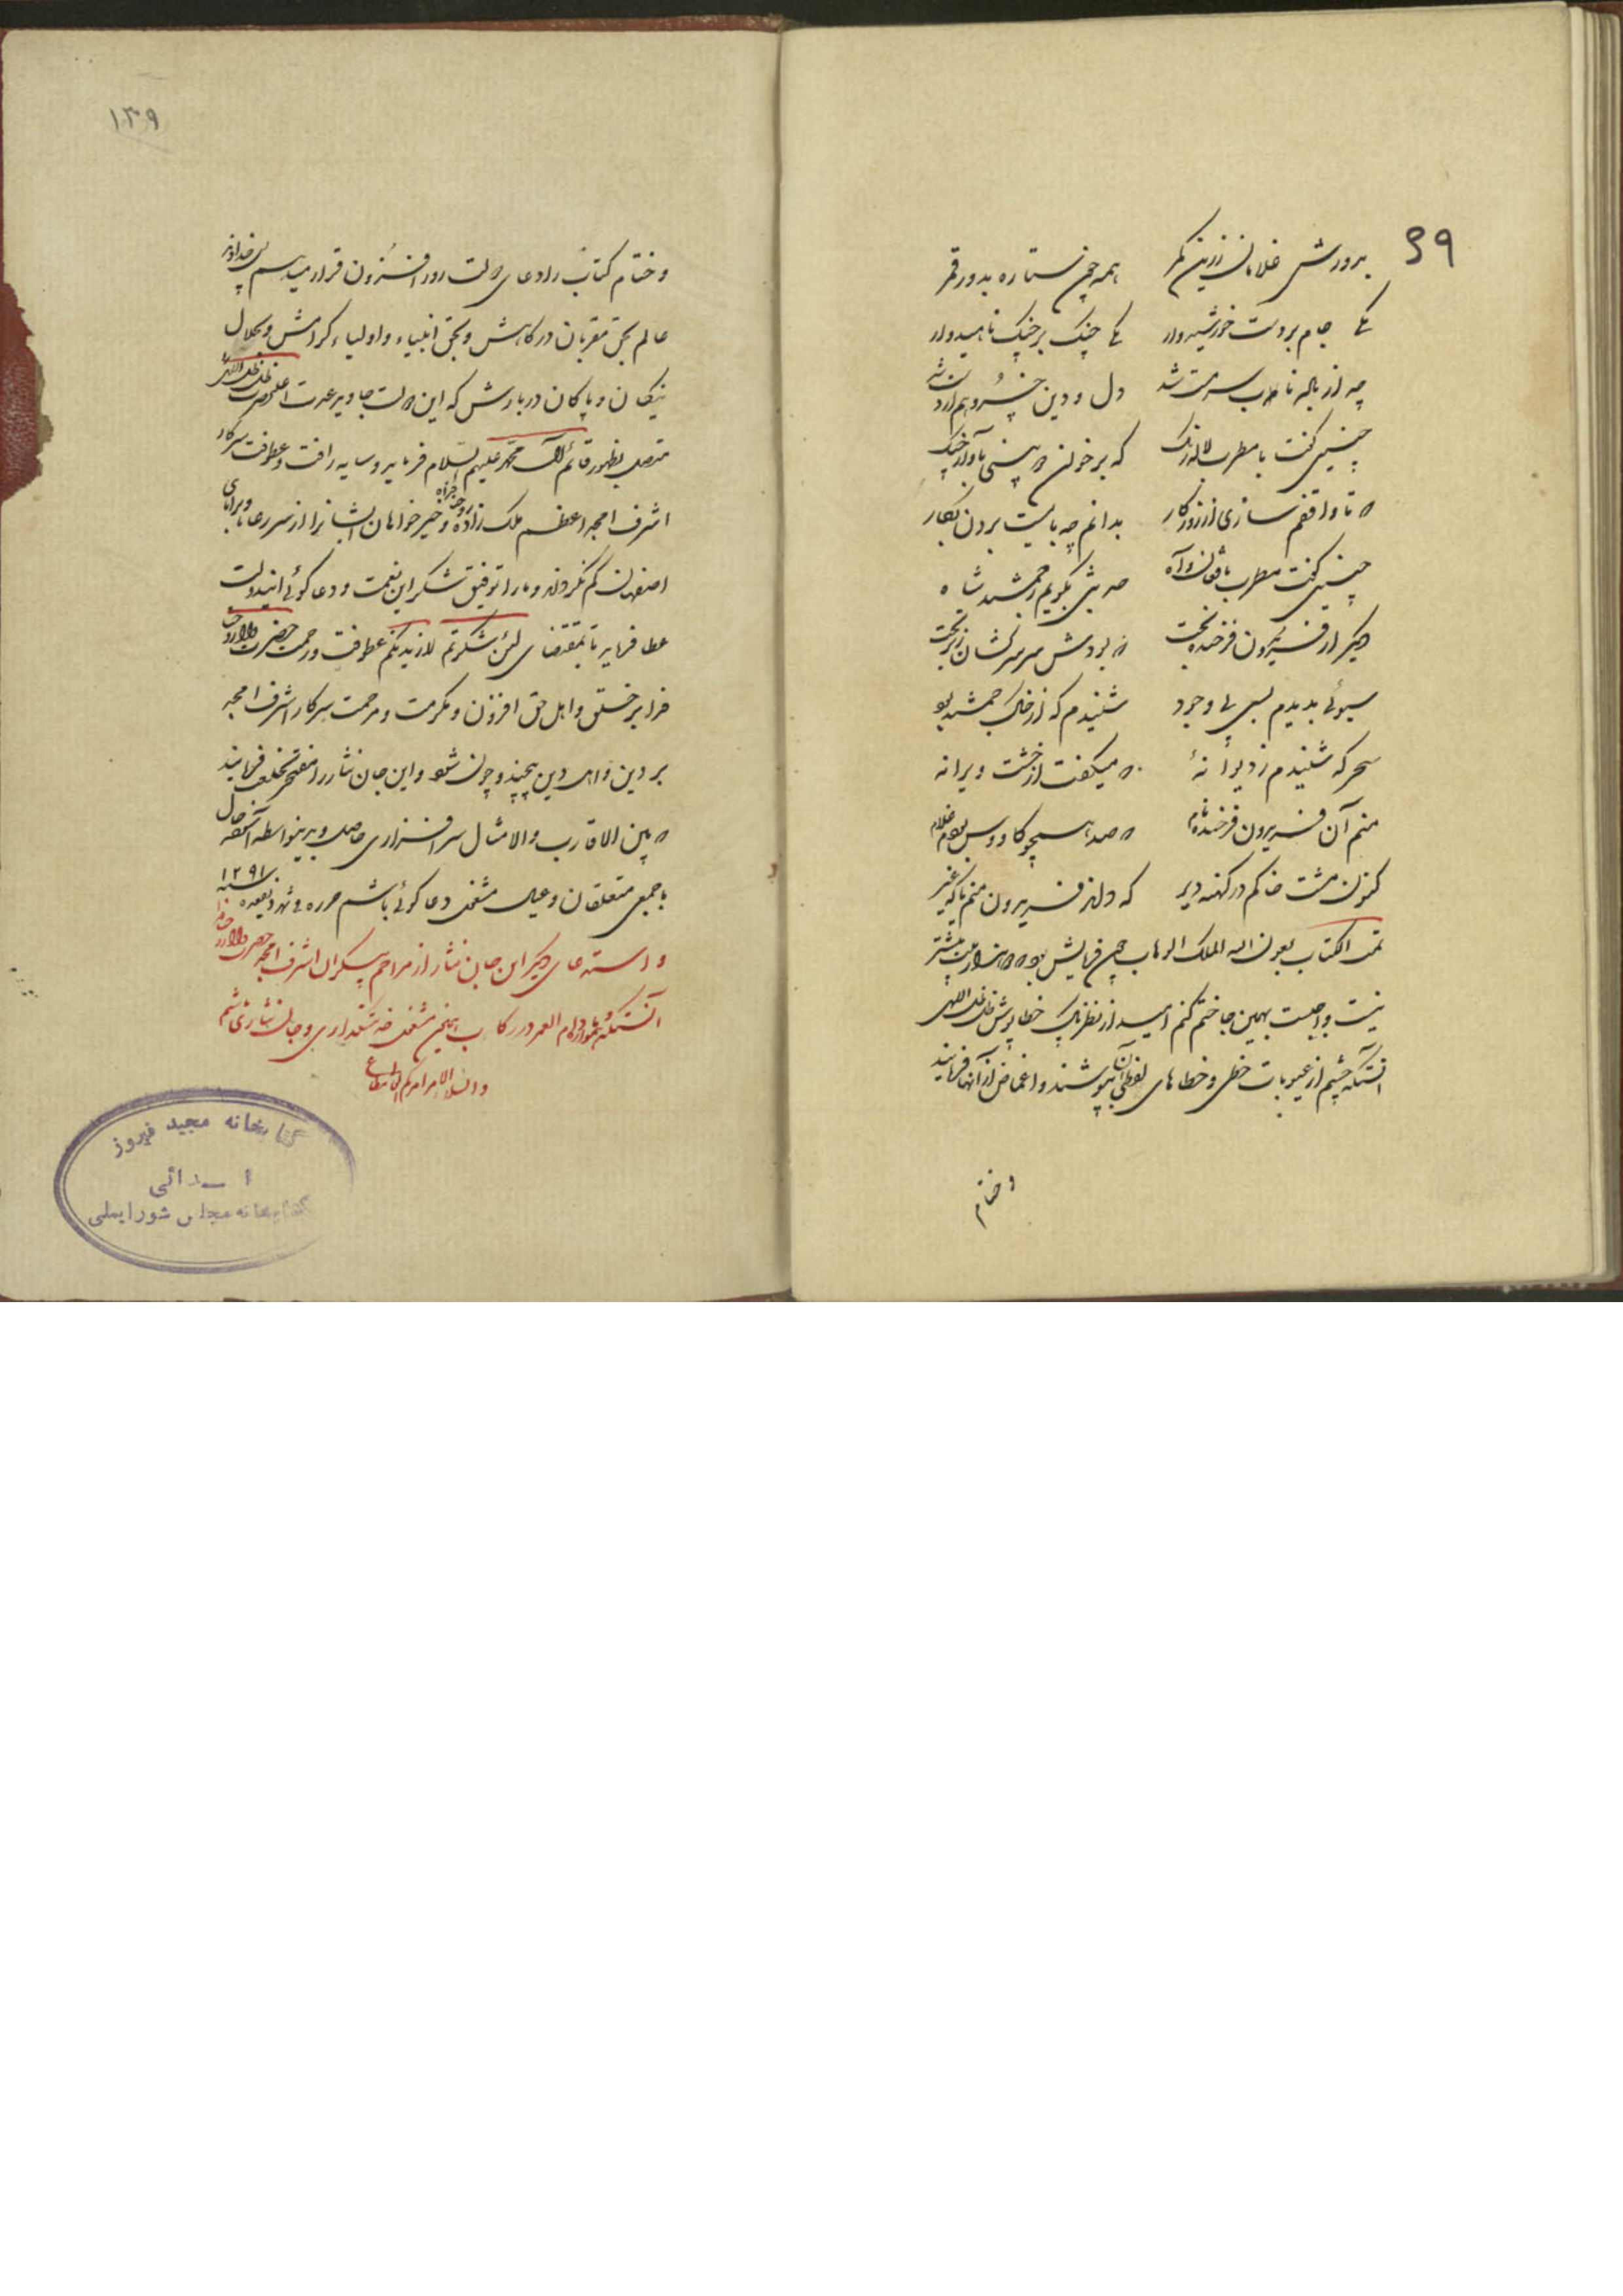 ۶۹
بدورش غلامان زرین کمر همه چون ستاره بدور قمر
یکی جام بردست خورشیدوار یکی چنک برچنک ناهیدوار
چه از باله ناب سرمست شد دل و دین خسرو هم از دست شد
چنین گفت با مطرب لاله رنک که برخوان حدیثی باواز چنک
که تا واقفم سازی از روزگار بدانم چه بایست بردن بکار
چنین گفت مطرب با فغان و آه حدیثی بگویم ز جمشید شاه
دیگر از فریدون فرخنده بخت که بودش سر سرکشان زیر تخت
سبوئی بدیدم بسی بی وجود شنیدم که از خاک جمشید بود
سحر که شنیدم ز دیوانهٔ که میکفت از خشت ویرانه
منم آن فریدون فرخنده نام که صد همچو کاووس بودم غلام
کنون مشت خاکم در کهنه دیر که داند فریدون منم یا که غیر
تمت الکتاب بعون الله الملک الوهاب چون فرمایش بود که هزار بیت بیشتر
نیست واجبست بهمین جا ختم کنم امید از نظر پاک خطاپوش ظل اللهی
آنستکه چشم از عیوبات خطی و خطاهای لفظی آن بپوشند و اغماض از آنها فرمایند
و ختام
۱۳۹
و ختام کتاب را دعای دولت روز افزون قرار میدهم الهی خداوند
عالم بحق مقربان درکاهش و بحق انبیاء و اولیاء کرامش و بجلال
نیکان و پاکان دربارش که این دولت جاوید مدت اعلیحضرت ظل اللهی
متصل بظهور قائم آل محمد علیهم السلام فرماید و سایه رافت و عطوفت سرکار
اشرف امجد اعظم ملک زاده و خیرخواهان ایشانرا از سر رعایا و برایای
اصفهان کم نکرداند و ما را توفیق شکر این نعمت و دعاکوئی ایندولت
عطا فرماید تا بمقتضای لئن شکرتم لازیدنکم عطوفت و رحمت حضرت والا
فرا بر خلق و اهل حق افزون و مکرمت و مرحمت سرکار اشرف امجد
بر دین و اهل دین بیچند و چون شود و این جان نثار را مفتخر بخلعت فرمایند
که بین الاقارب و الامثال سرافرازی حاصل و بدینواسطه
با جمیع متعلقان و عیال مشغول دعاکوئی باشم حرره فی شهر ذیقعده سنه ۱۲۹۱
و استدعای دیگر این جان نثار از مراحم بیکران اشرف امجد حضرت والا
آنستکه مادام العمر در رکاب مشغول خدمتکذاری و جان نثاری باشم
والسلام الامر امرکم المطاع
کتابخانه مجید فیروز
اهدائی
کتابخانه مجلس شورایملی